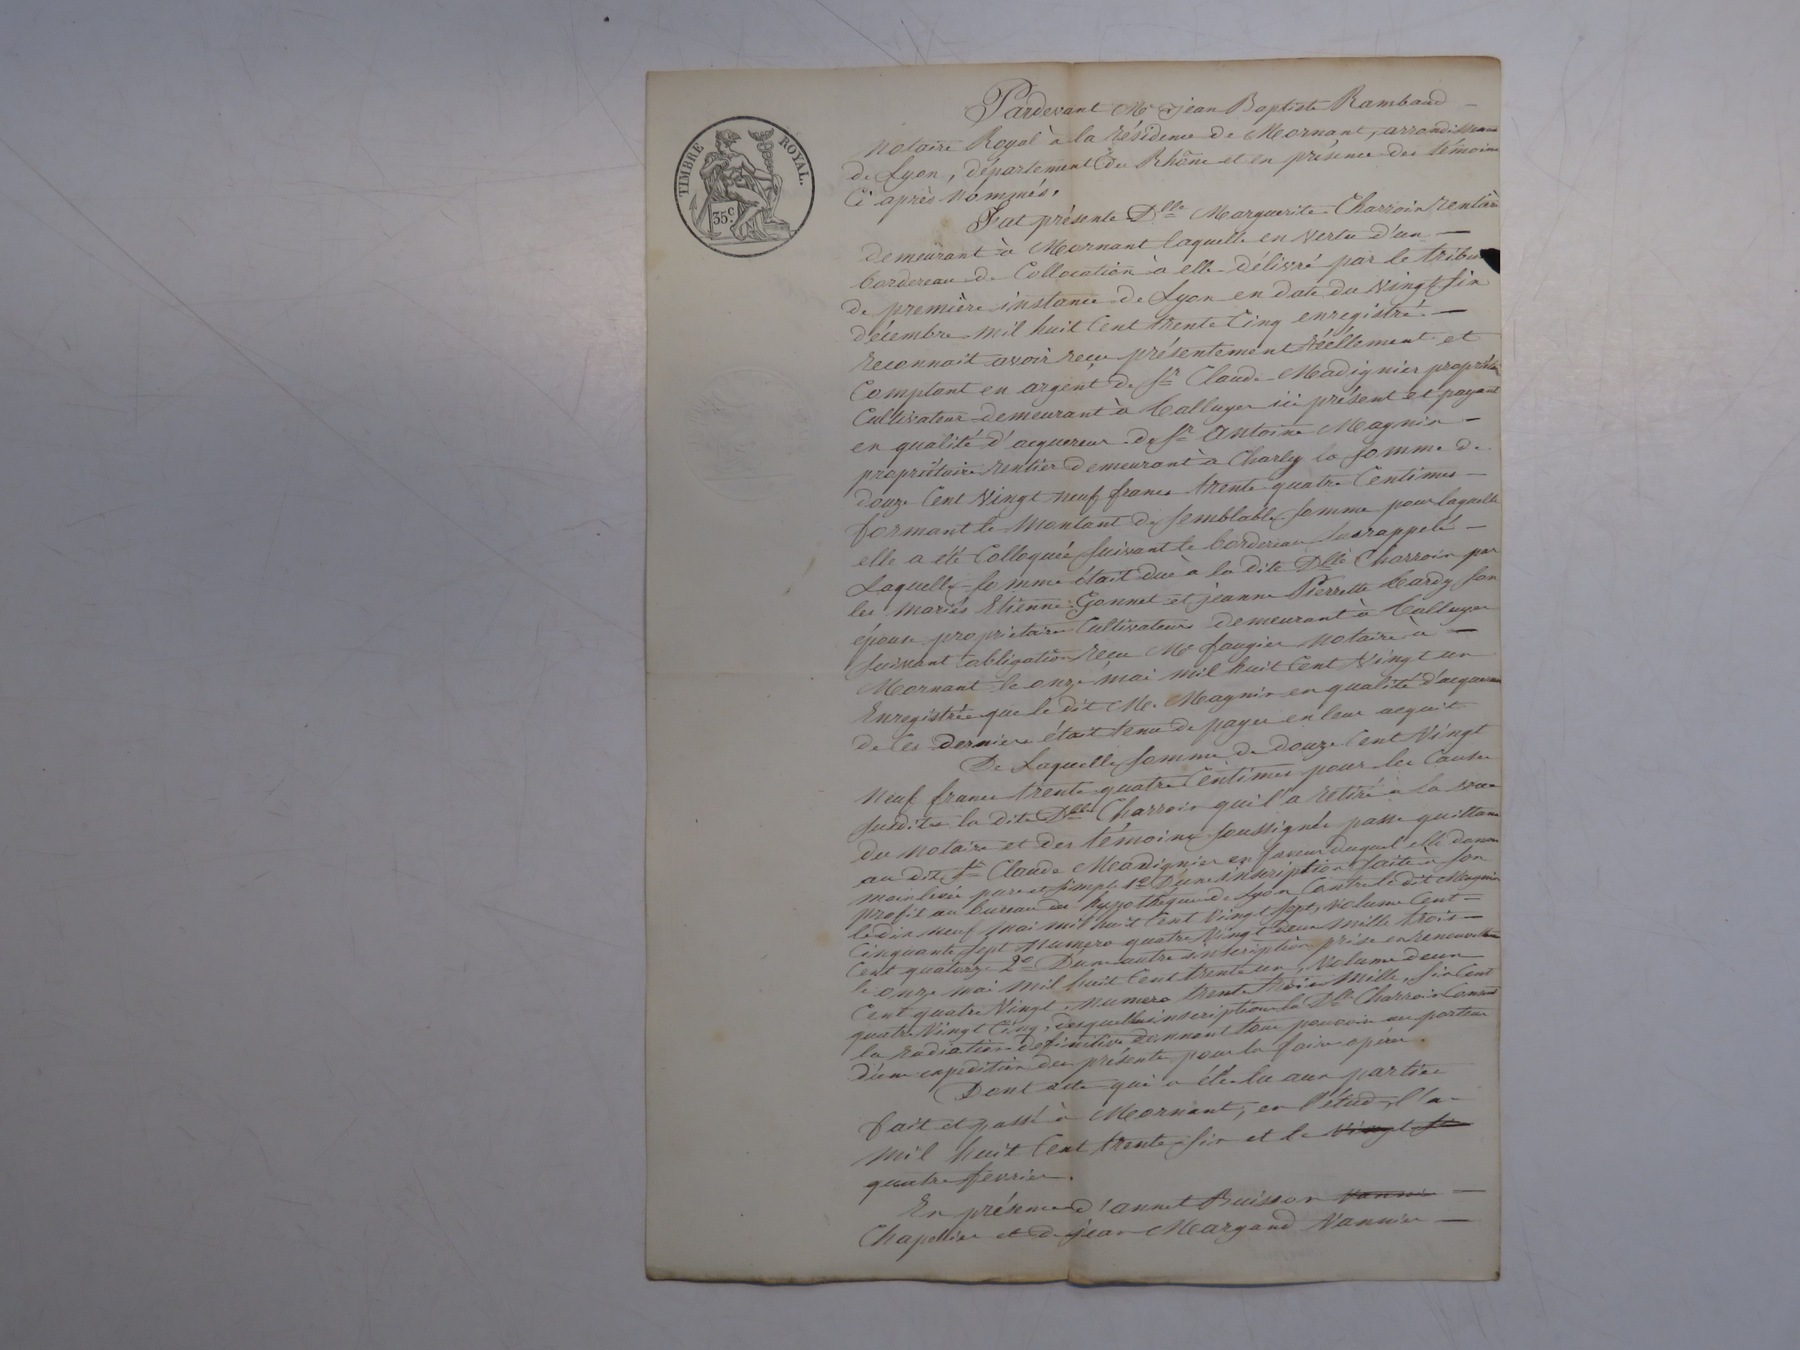 TIMBRE ROYAL.
35.c
Pardevant Me jean Baptiste Rambaud
notaire Royal à la résidence de Mornant, arrondissement
de Lyon, département du Rhône et en présence des témoins
Ci après nommés,
Fut présente Dlle Marguerite Charroin rentière
demeurant à Mornant laquelle en vertu d'un
bordereau de Collocation à elle délivré par le tribunal
de première instance de Lyon en date du vingt six
décembre mil huit Cent trente Cinq enregistré
reconnait avoir reçu présentement réellement et
Comptant en argent de Sr Claude Madignier propriétaire
Cultivateur demeurant à Talluyer ici présent et payant
en qualité d'acquereur de Sr Antoine Magnin
propriétaire rentier demeurant à Charly la somme de
douze Cent vingt neuf francs trente quatre Centimes
formant le montant de semblable somme pour laquelle
elle a été Colloquée suivant le bordereau susrappelé
Laquelle somme était due à la dite Dlle Charroin par
les mariés Etienne Gonnet et jeanne Pierrette Tardy son
épouse propriétaires Cultivateurs demeurant à Talluyer
suivant obligation reçu Me faugier notaire à
Mornant le onze mai mil huit Cent vingt un
Enregistrée que le dit M. Magnin en qualité d'acquereur
de Ces derniers était tenu de payer en leur acquit
De Laquelle somme de douze Cent vingt
neuf francs trente quatre Centimes pour les Causes
susdites la dite Dlle Charroin qui l'a retiré à la vue
du notaire et des témoins soussignés passe quittance
au dit Sr Claude Madignier en faveur duquel elle donne
main levée pure et simple 1o D'une inscription faite à son
profit au bureau des hypothèques de Lyon Contre le dit Magnin
le dix neuf mai mil huit Cent vingt sept, volume Cent
Cinquante sept numero quatre vingt deux mille trois
Cent quatorze 2o D'une autre inscription prise en renouvellement
le onze mai mil huit Cent trente un, volume deux
Cent quatre vingt, numero trente trois mille, six Cent
quatre vingt Cinq, desquelles inscriptions la Dlle Charroin Consent
la radiation définitive donnant tout pouvoir au porteur
d'une expedition des présentes pour la faire opérer.
Dont acte qui a été lu aux parties
fait et passé à Mornant, en l'étude, l'an
mil huit Cent trente six et le vingt
quatre fevrier.
En présence d'annet Buisson
Chapellier et de jean Margand Vannier